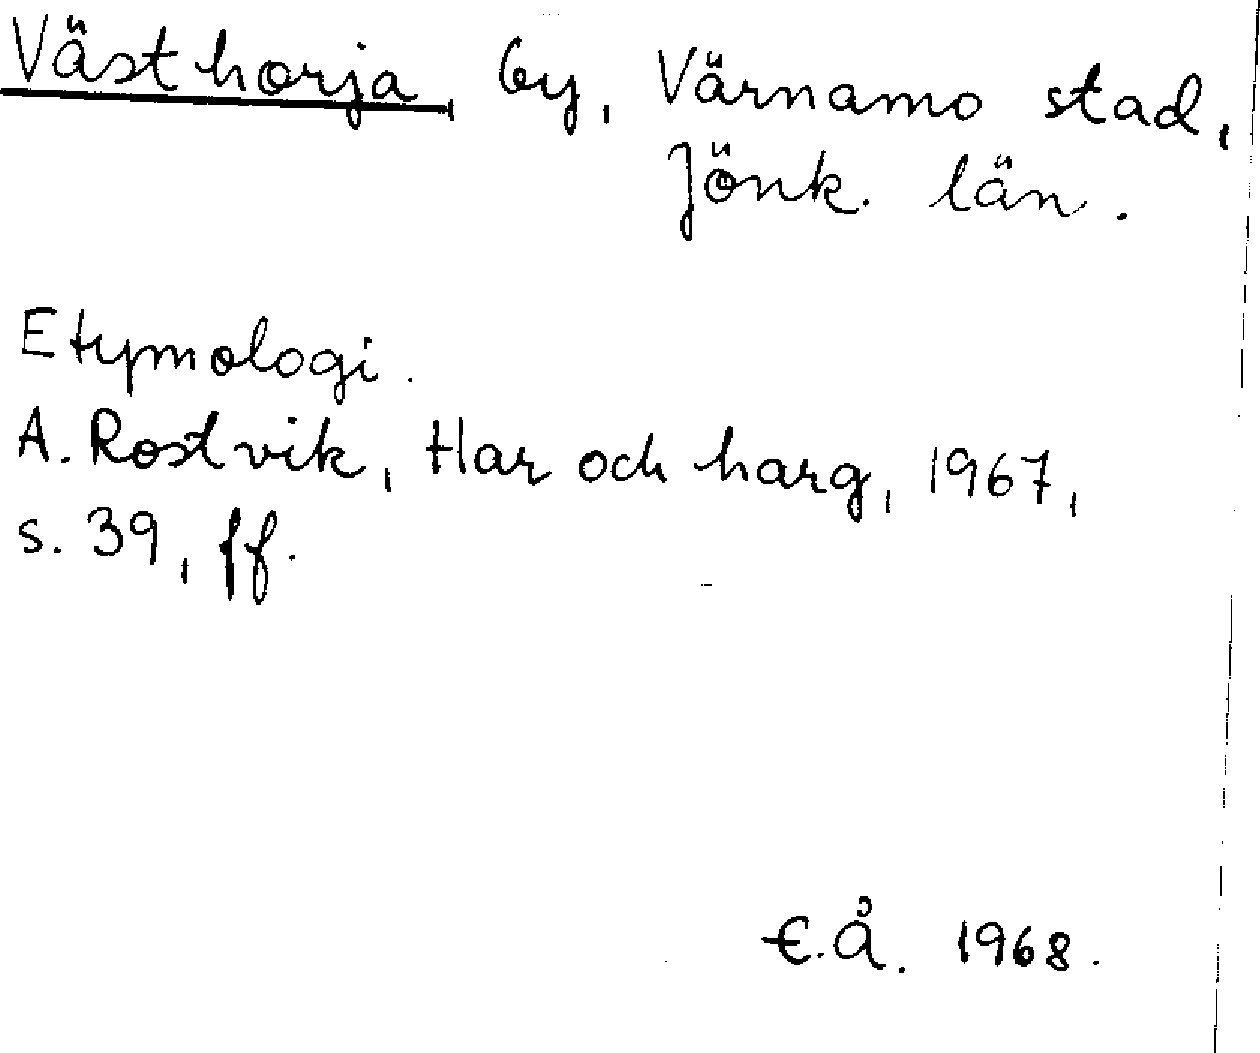 Västhorja, by, Värnamo stad,
Jönk. län.
Etymologi.
A. Rostvik, Har och harg, 1967,
s. 39, ff.
E.Å. 1968.